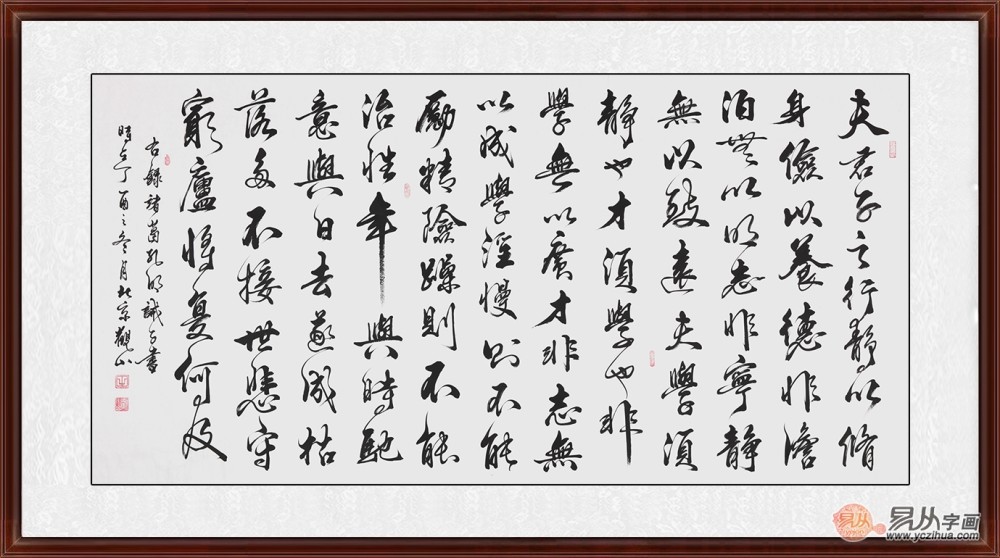 夫君子之行靜以脩
身儉以養德非澹
泊無以明志非寧靜
無以致遠夫學須
靜也才須學也非
學無以廣才非志無
以成學淫慢則不能
勵精險躁則不能
治性年與時馳
意與日去遂成枯
落多不接世悲守
窮廬將復何及
右錄諸葛孔明誡子書
時在丁酉之冬月北京觀山
易从字画
www.yczihua.com